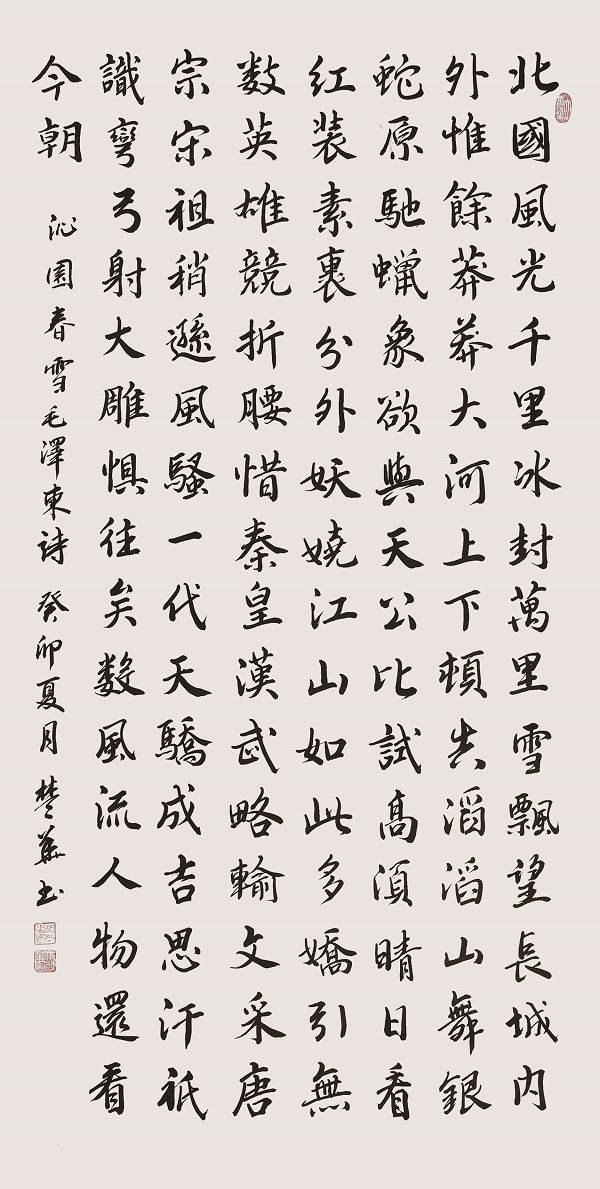 北國風光千里冰封萬里雪飄望長城内
外惟餘莽莽大河上下頓失滔滔山舞銀
蛇原馳蠟象欲與天公比試高須晴日看
红装素裹分外妖嬈江山如此多嬌引無
数英雄競折腰惜秦皇漢武略輸文采唐
宗宋祖稍遜風騷一代天驕成吉思汗祇
識彎弓射大雕懼往矣數風流人物還看
今朝
沁園春雪毛澤東詩 癸卯夏月 楚華书